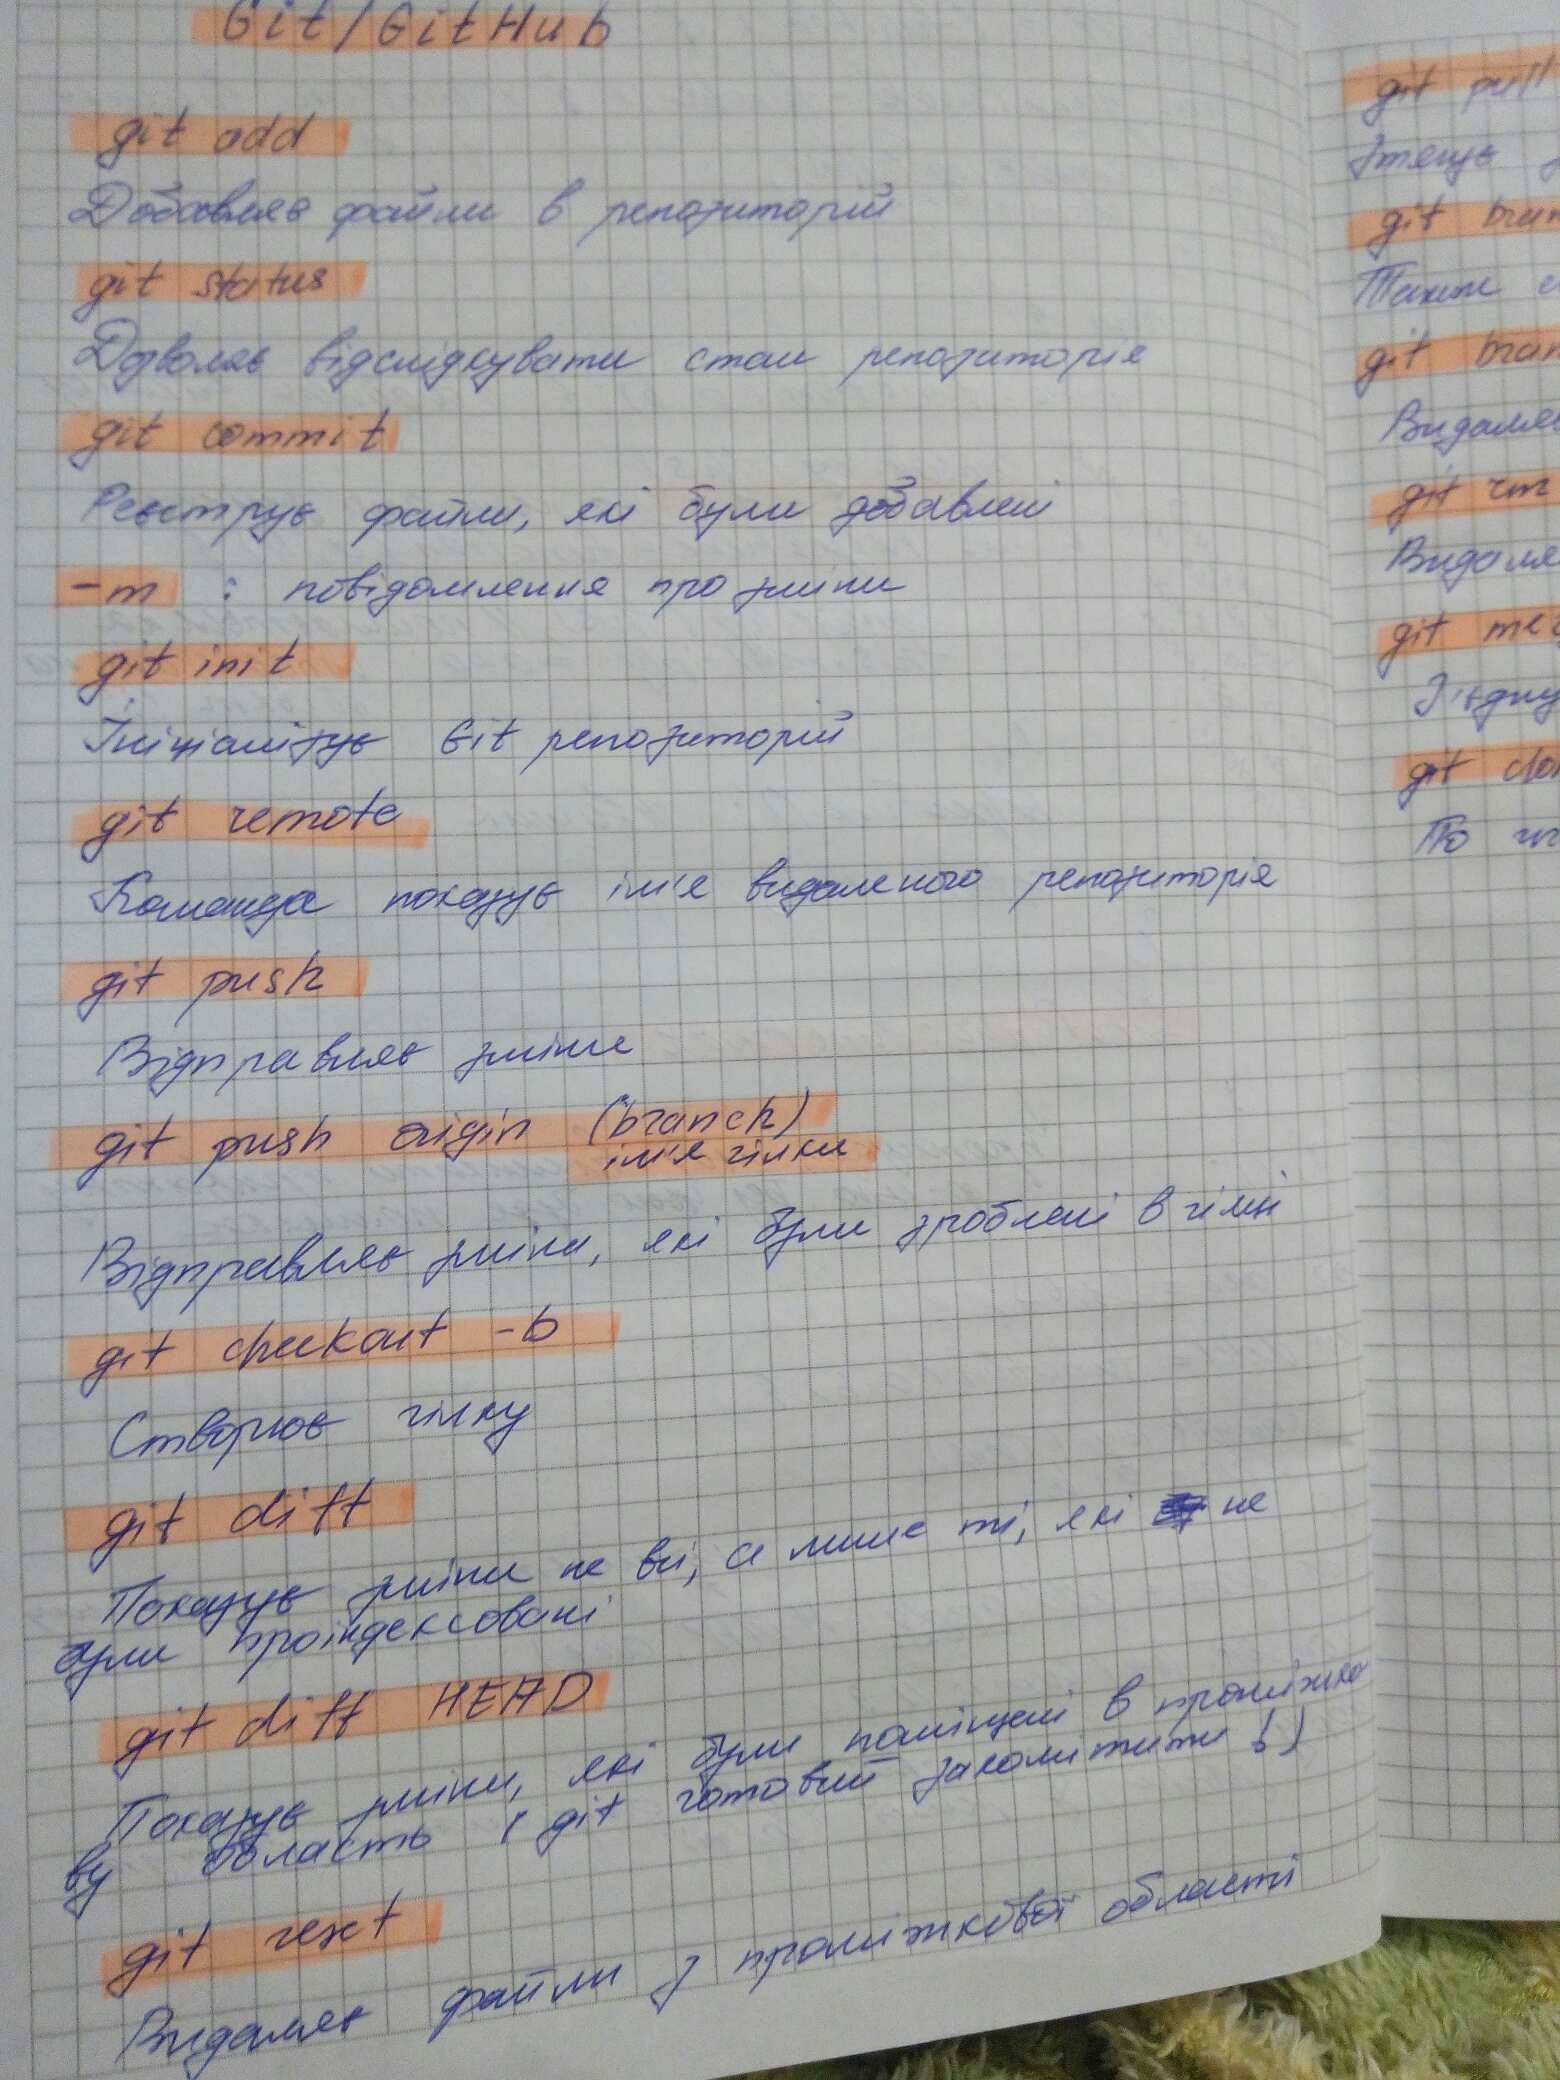 Git/GitHub
git add
Добавляє файли в репозиторій
git status
Дозволяє відслідкувати стан репозиторія
git commit
Реєструє файли, які були добавлені
-m : повідомлення про зміни
git init
Ініціалізує Git репозиторій
git remote
Команда показує ім'я видаленого репозиторія
git push
Відправляє зміни
git push origin (branch)
ім'я гілки
Відправляє зміни, які були зроблені в гілці
git checkout -b
Створює гілку
git diff
Показує зміни не всі, а лише ті, які не
були проіндексовані
git diff HEAD
Показує зміни, які були поміщені в проміжко
ву область і git готовий закомітити
git reset
Видаляє файли з проміжкової області
git pull
Зтягує
git
Також
git
Видаляє
git rm
Видаля
git
З'єдну
git
По